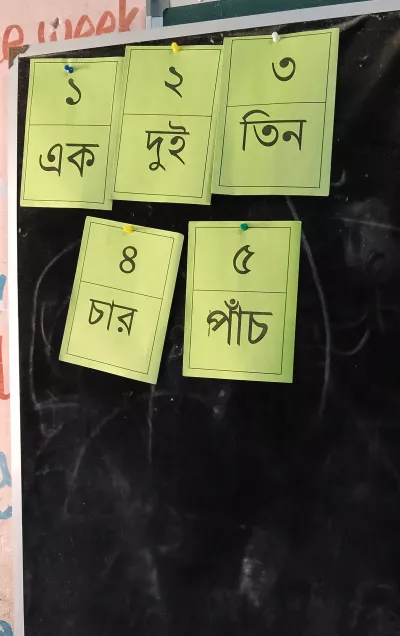 e week
১
এক
২
দুই
৩
তিন
৪
চার
৫
পাঁচ